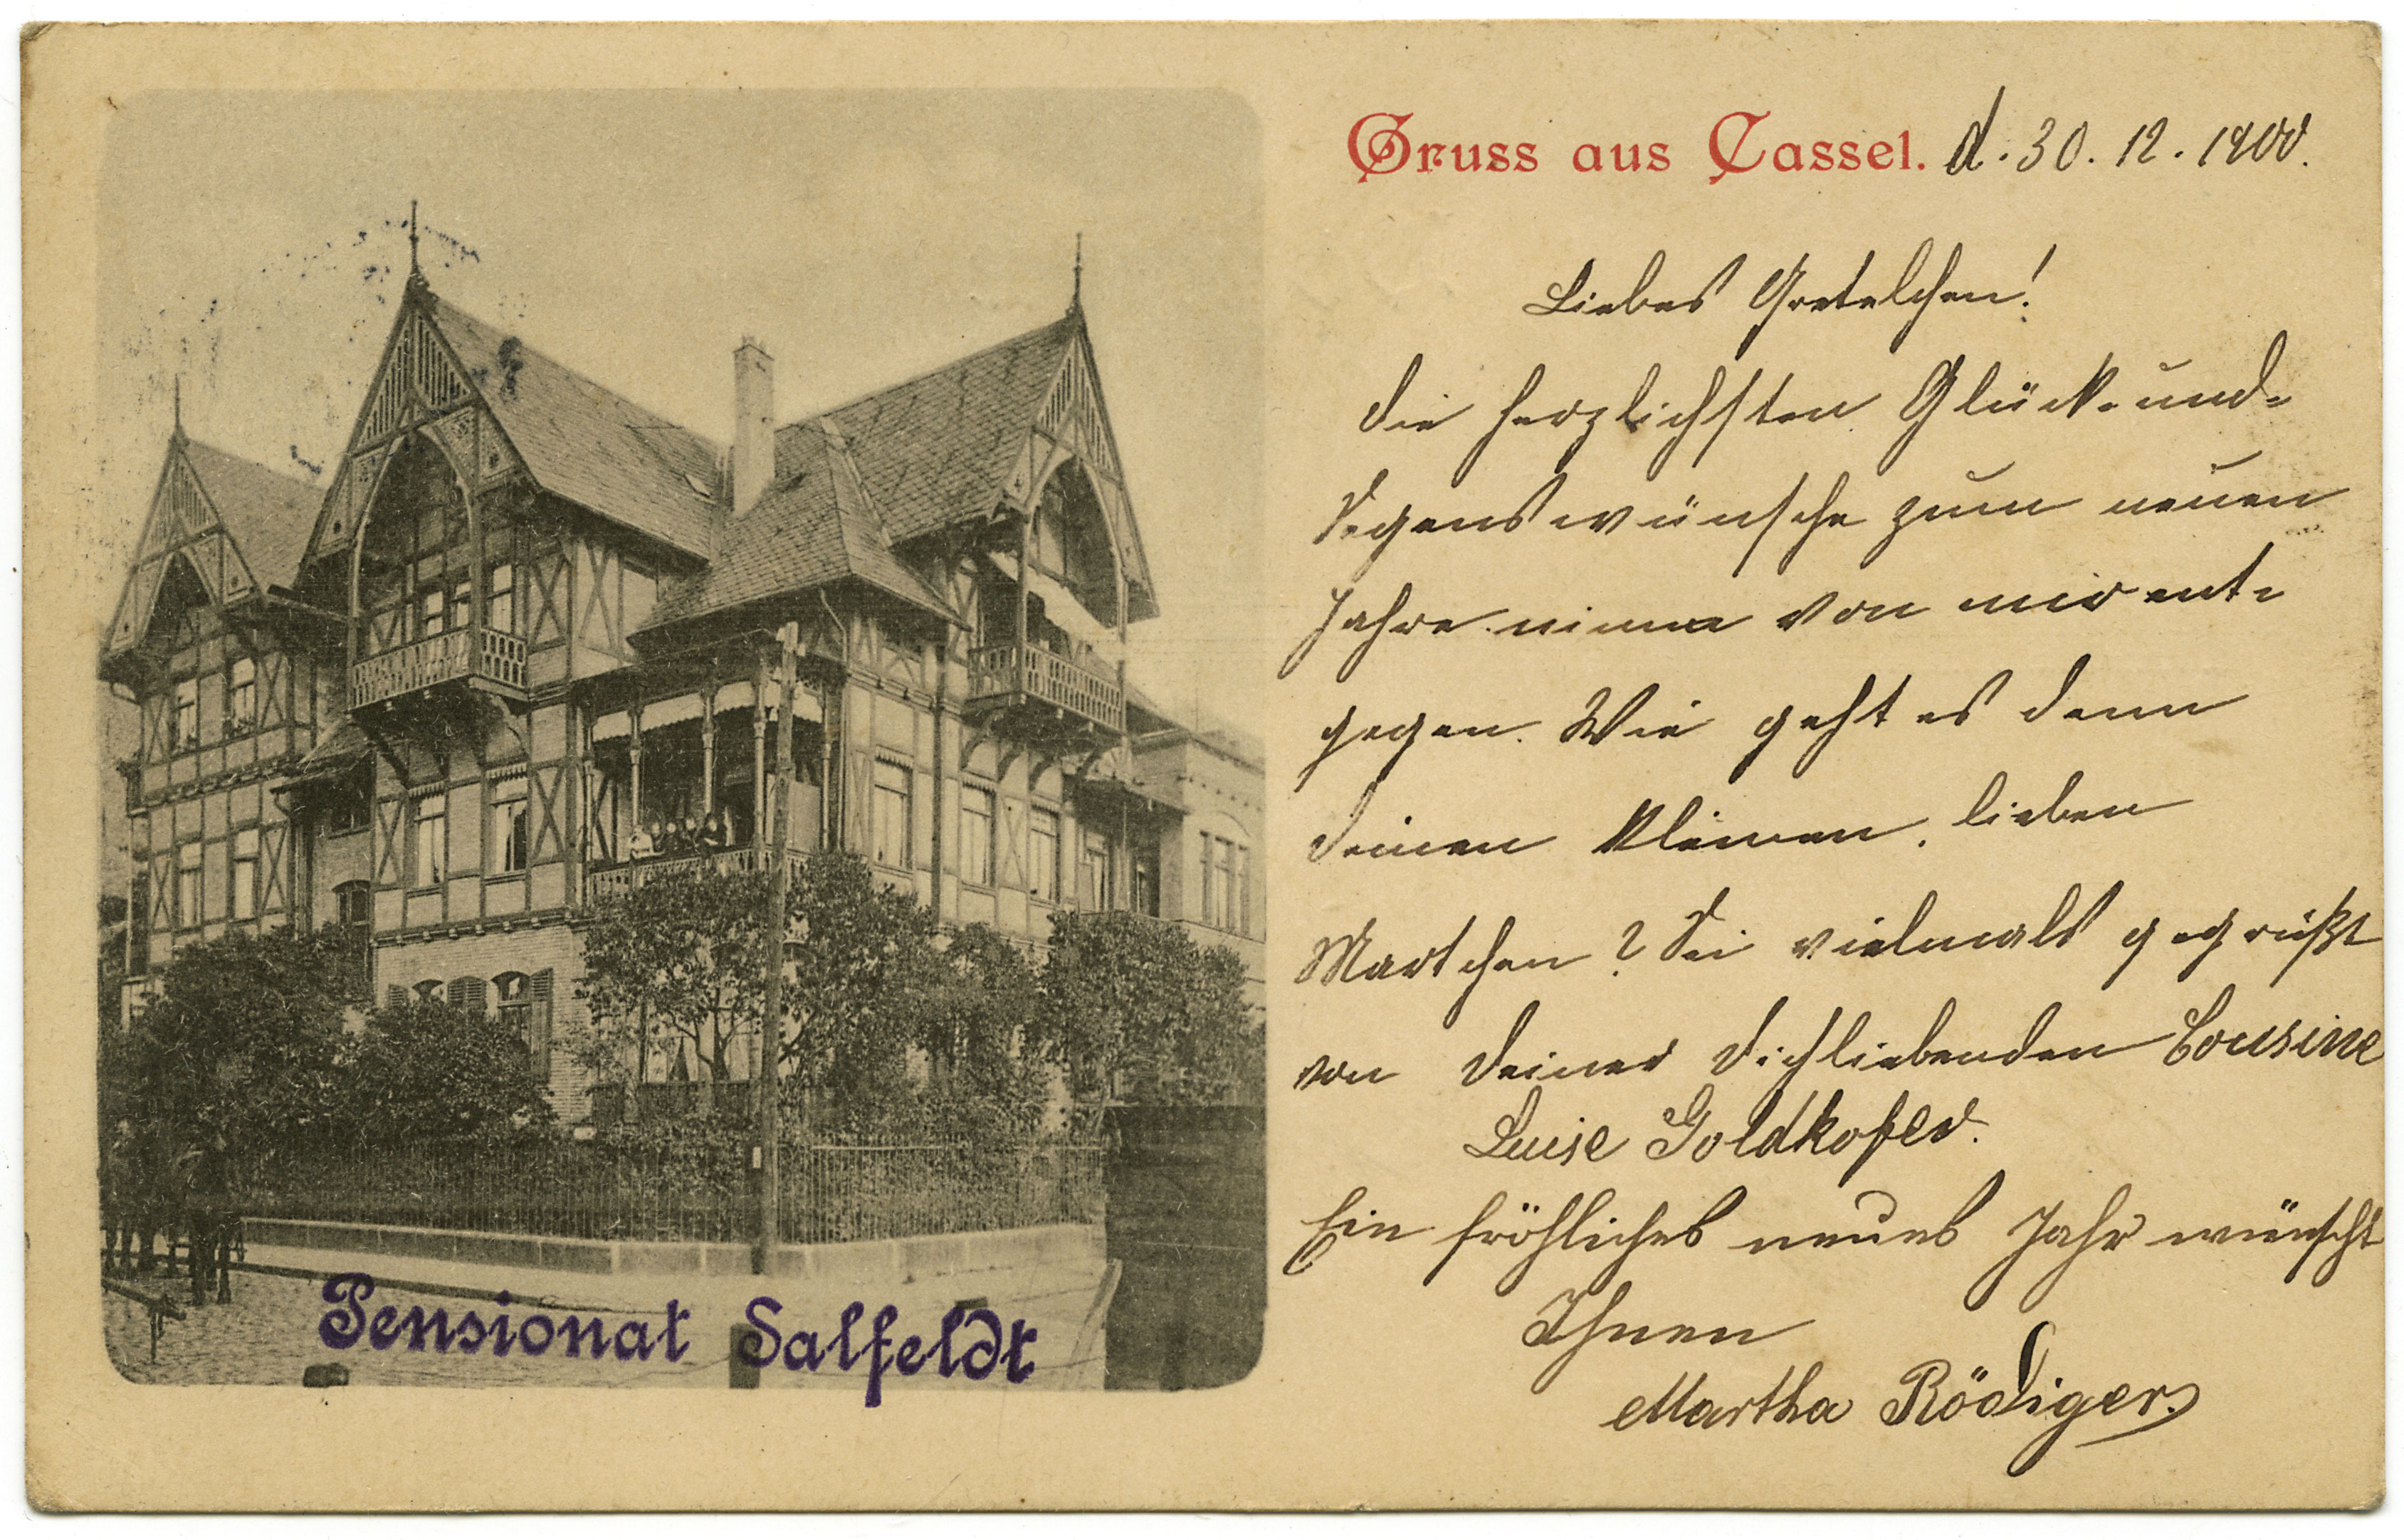 Gruss aus Cassel. d. 30. 12. 1900.
Liebes Gretelchen!
Die herzlichsten Glück- und-
Segenswünsche zum neuen
Jahre nimm von mir ent-
gegen. Wie geht es denn
Deinen Kleinen, lieben
Martchen? Sei vielmals gegrüßt
von Deiner Dichliebenden Cousine
Luise Goldkofer.
Ein fröhliches neues Jahr wünscht
Ihnen
Martha Rödiger.
Pensionat Salfeldt